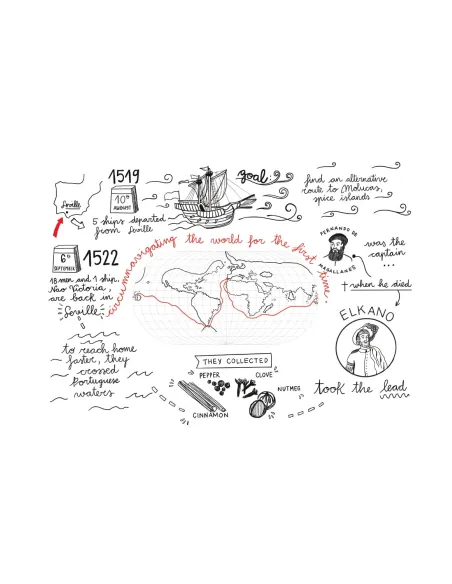 1519
10th
AUGUST
Seville
5 ships departed
from Seville
goal:
find an alternative
route to Molucas,
spice islands
circumnavigating the world for the first time
FERNANDO DE
MAGALLANES
was the
captain
...
† when he died
ELKANO
took the lead
6th
SEPTEMBER
1522
18 men and 1 ship,
Nao Victoria,
are back in
Seville
to reach home
faster, they
crossed
Portuguese
waters
THEY COLLECTED
PEPPER
CLOVE
NUTMEG
CINNAMON